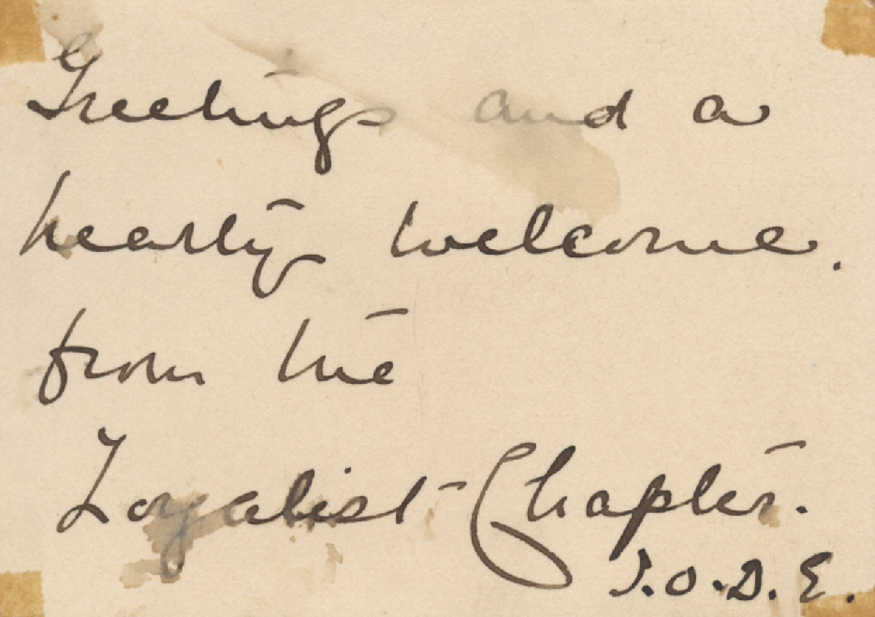 Greetings and a
hearty welcome.
from the
Loyalist Chapter.
I.O.D.E.